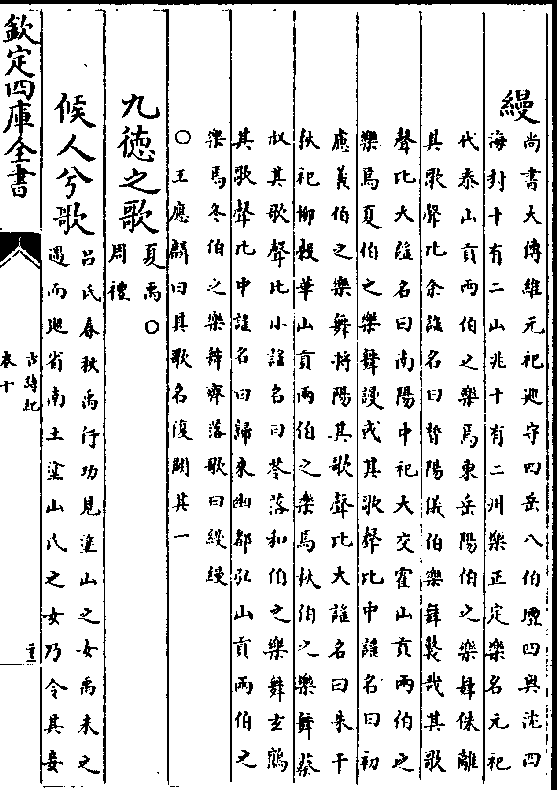 縵
尚書大傳維元祀廵守四岳八伯壇四奥沈四
海封十有二山兆十有二州樂正定樂名元祀
代泰山貢兩伯之樂焉東岳陽伯之樂舞侏離
其歌聲比余謠名曰晳陽儀伯樂舞鼚哉其歌
聲比大謠名曰南陽中祀大交霍山貢兩伯之
樂焉夏伯之樂舞謾彧其歌聲比中謠名曰初
慮羲伯之樂舞將陽其歌聲比大謠名曰朱干
秋祀柳榖華山貢兩伯之樂焉秋伯之樂舞蔡
俶其歌聲比小謠名曰苓落和伯之樂舞玄鶴
其歌聲比中謠名曰歸來幽都弘山貢兩伯之
樂焉冬伯之樂舞齊落歌曰縵縵
○王應麟曰其歌名復闕其一
九德之歌
夏禹○
周禮
候人兮歌
呂氏春秋禹行功見塗山之女禹未之
遇而廵省南土塗山氏之女乃令其妾
欽定四庫全書
古詩紀
卷十